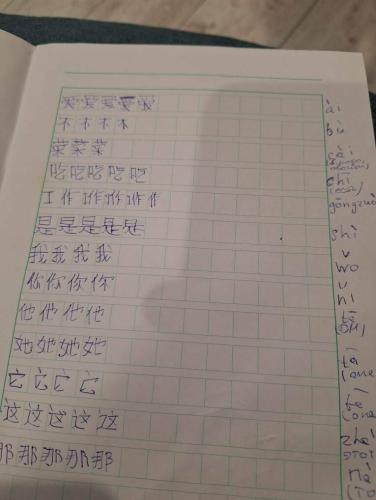 爱爱爱爱爱 ài
不不不不 bù
菜菜菜 cài
吃吃吃吃吃 chī
工作工作工作作作 gōngzuò
是是是是是 shì
我我我我 wǒ
你你你你 nǐ
他他他他 tā
她她她她 tā
它它它它 tā
这这这这这 zhè это
那那那那那 nà